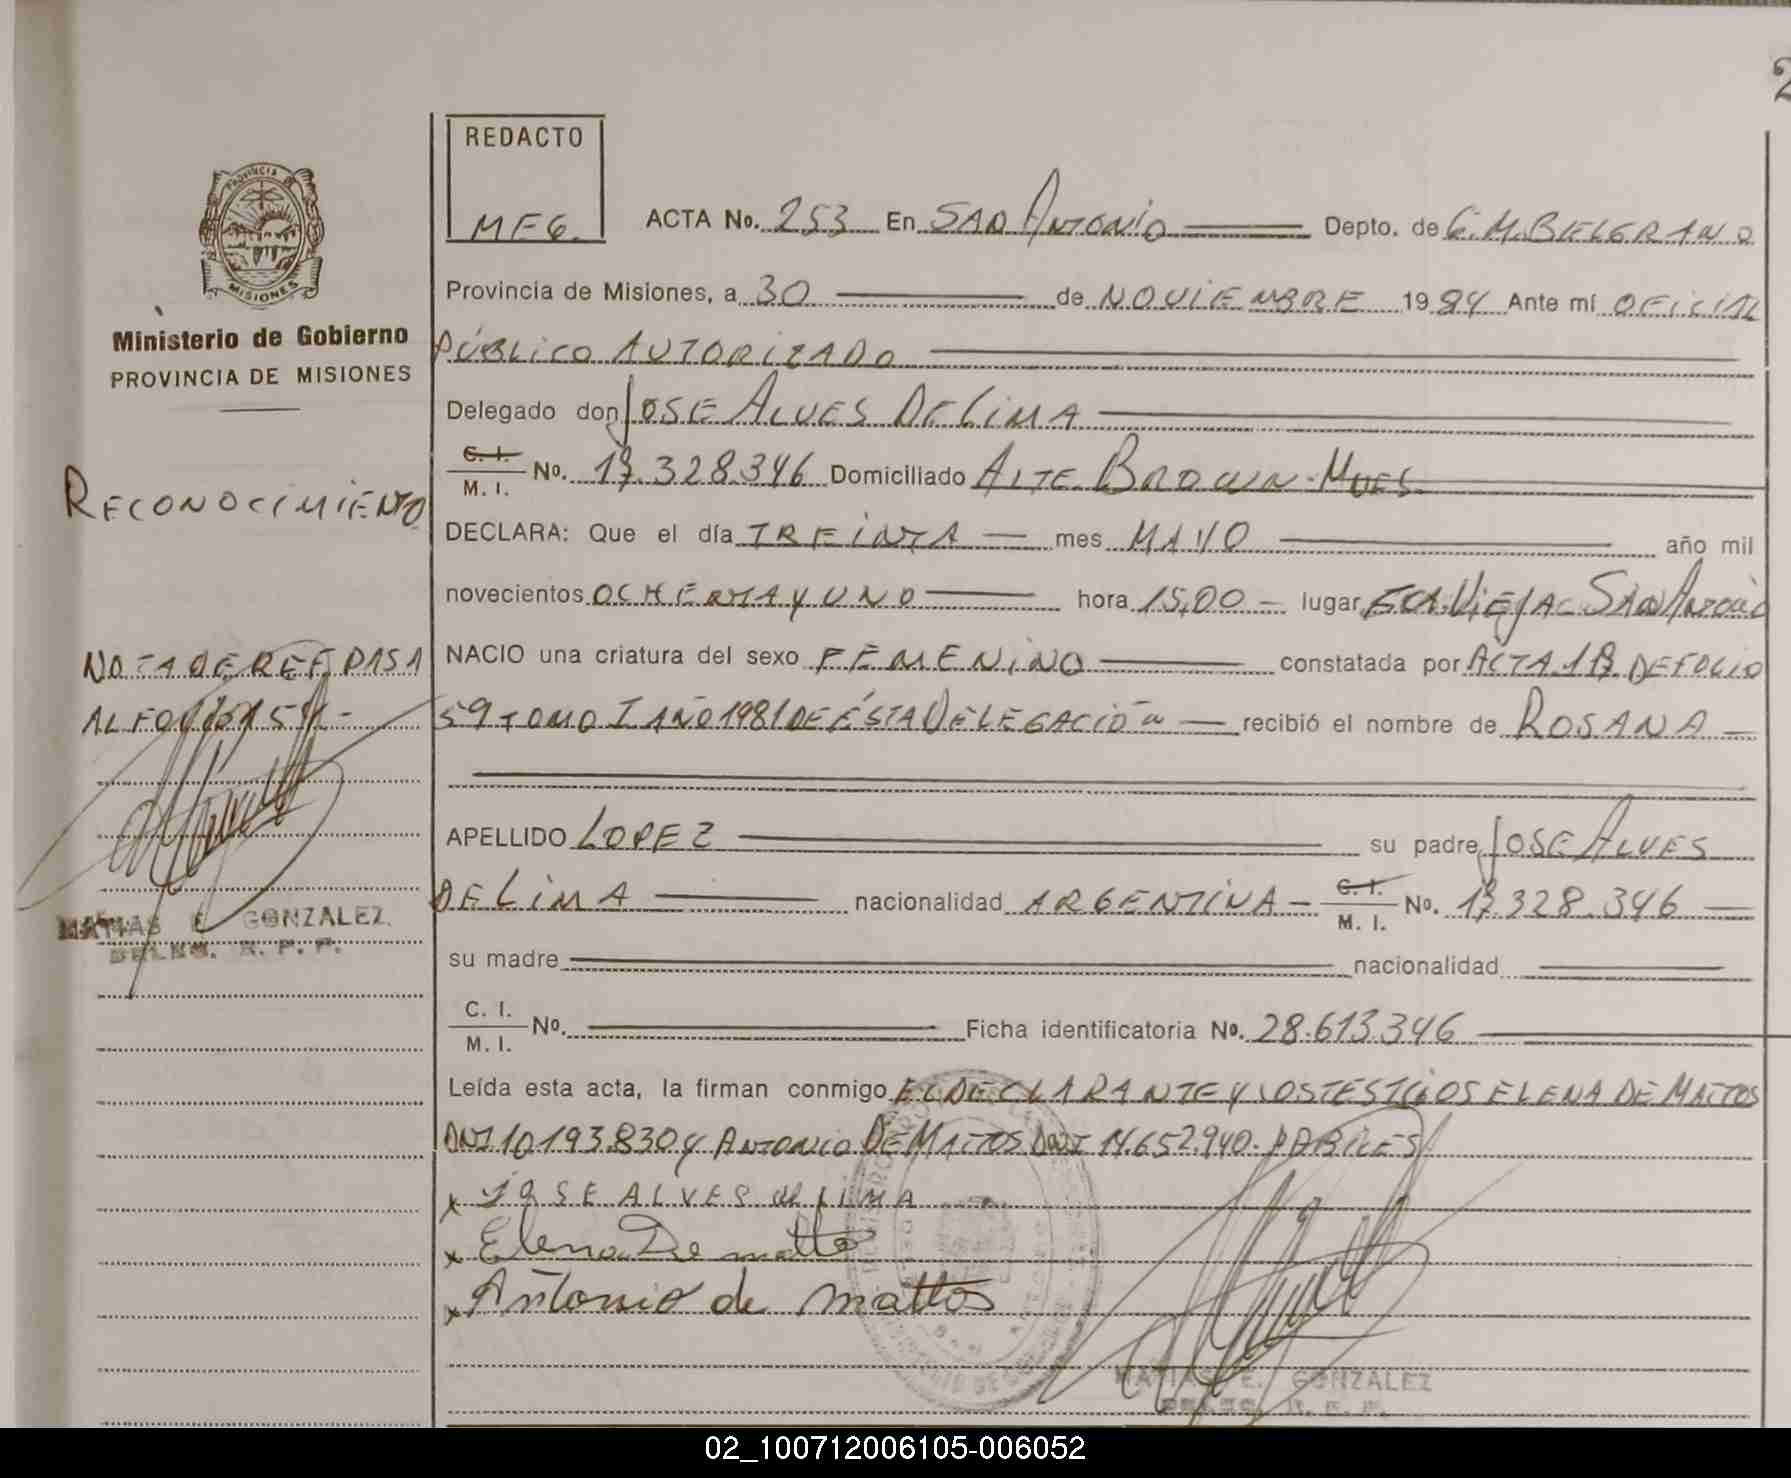 2
REDACTO
MEG.
ACTA No. 253 En SAN ANTONIO Depto. de G. M. BELGRANO
PROVINCIA
MISIONES
Provincia de Misiones, a 30 de NOVIEMBRE 1984 Ante mí OFICIAL
Ministerio de Gobierno
PÚBLICO AUTORIZADO
PROVINCIA DE MISIONES
Delegado don JOSE ALVES DE LIMA
C. I.
M. I. No. 17.328.346 Domiciliado ALTE. BROWN-MNES.
RECONOCIMIENTO
DECLARA: Que el día TREINTA mes MAYO año mil
novecientos OCHENTA Y UNO hora 15,00 lugar VIEJA SAN ANTONIO
NOTA DE REF. PASA
NACIO una criatura del sexo FEMENINO constatada por ACTA DE FOLIO
AL FOLIO
59 TOMO I AÑO 1981 DE ÉSTA DELEGACIÓN recibió el nombre de ROSANA
APELLIDO LOPEZ su padre JOSE ALVES
DE LIMA nacionalidad ARGENTINA C. I.
M. I. No. 17.328.346
MATIAS E. GONZALEZ
DELEG. R. P. P.
su madre nacionalidad
C. I.
M. I. No. Ficha identificatoria No. 28.613.346
Leída esta acta, la firman conmigo EL DECLARANTE Y LOS TESTIGOS ELENA DE MATTOS
DNI 10.193.830 Y ANTONIO DE MATTOS DNI 14.652.940.
x JOSE ALVES de LIMA
x Elena De mattos
x Antonio de mattos
MATIAS E. GONZALEZ
DELEG. R. P. P.
02_100712006105-006052